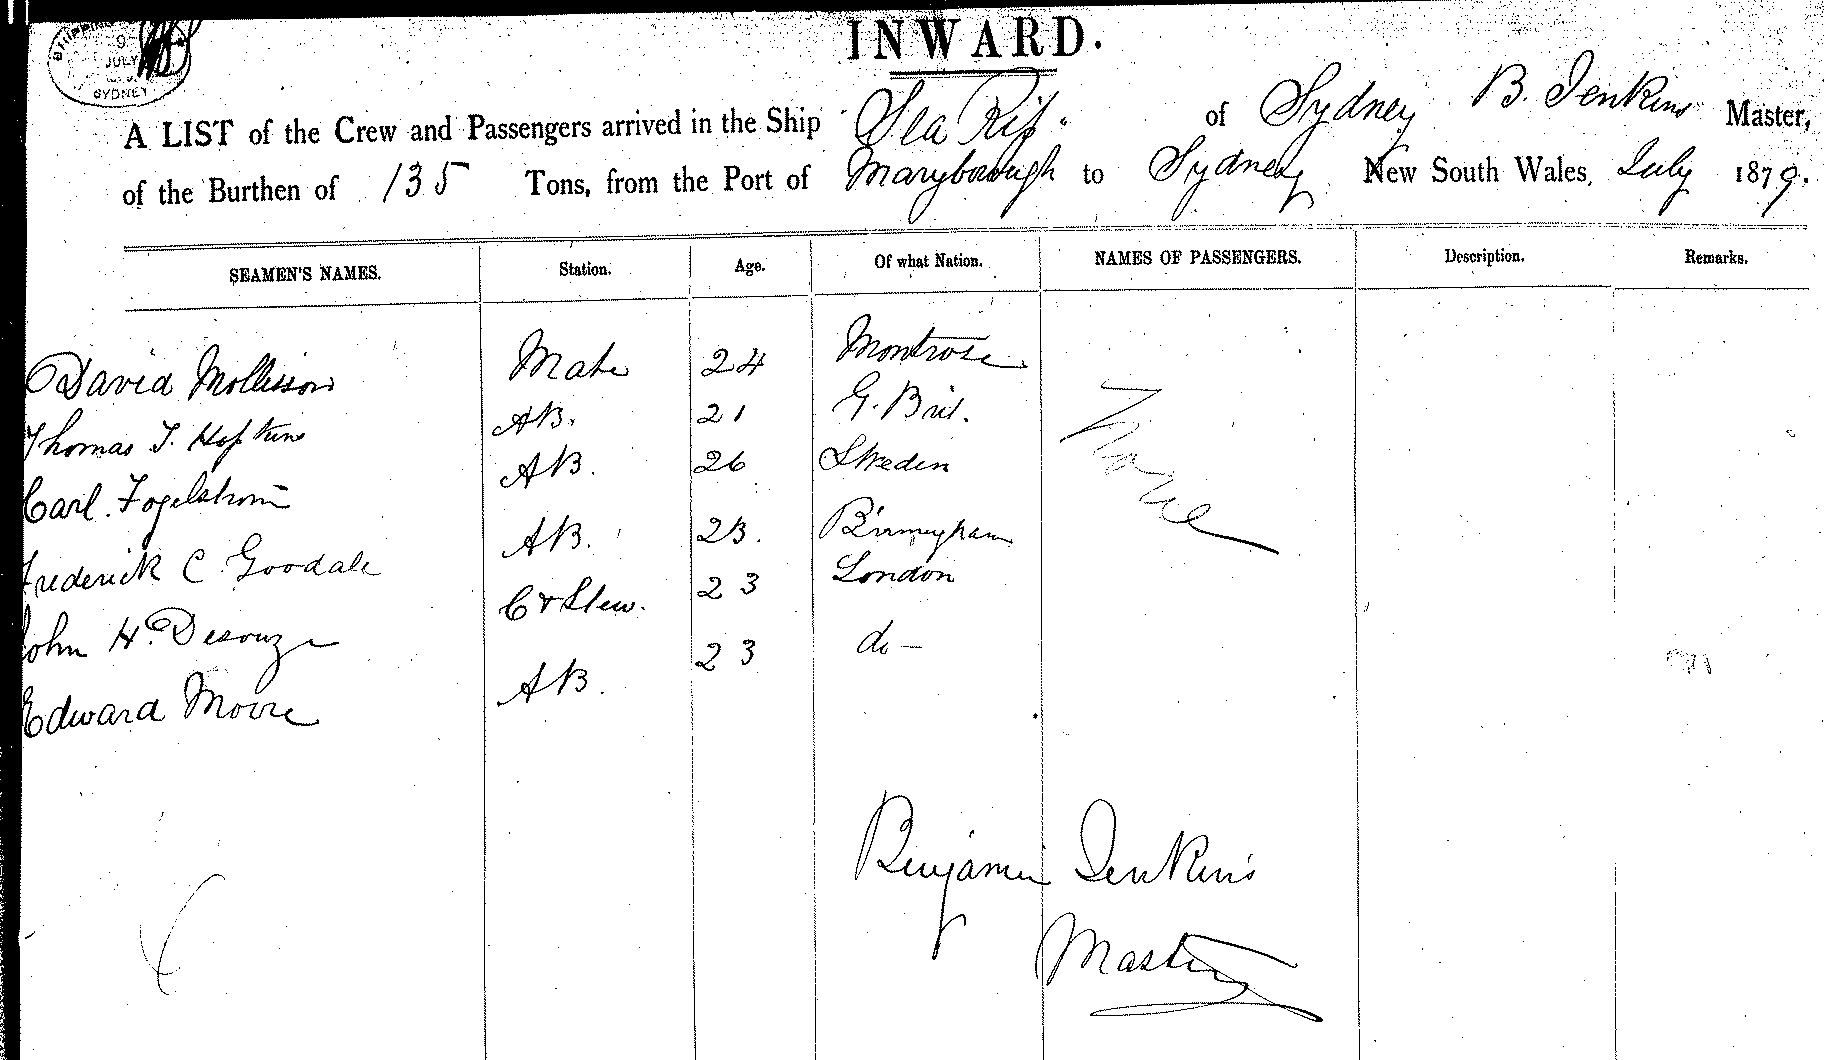 SHIPPING
9
JULY
SYDNEY
INWARD.
A LIST of the Crew and Passengers arrived in the Ship "Sea Rip" of Sydney B. Jenkins Master,
of the Burthen of 135 Tons, from the Port of Maryborough to Sydney New South Wales, July 1879.
SEAMEN'S NAMES. Station. Age. Of what Nation. NAMES OF PASSENGERS. Description. Remarks.
David Mollisson Mate 24 Montrose None
Thomas T. Hopkins AB. 21 G. Brit.
Carl Fogelstrom AB. 26 Sweden
Frederick C Goodale AB. 23. Birmingham
John H. Desouza C & Stew. 23 London
Edward Moore AB. 23 do —
Benjamin Jenkins
Master